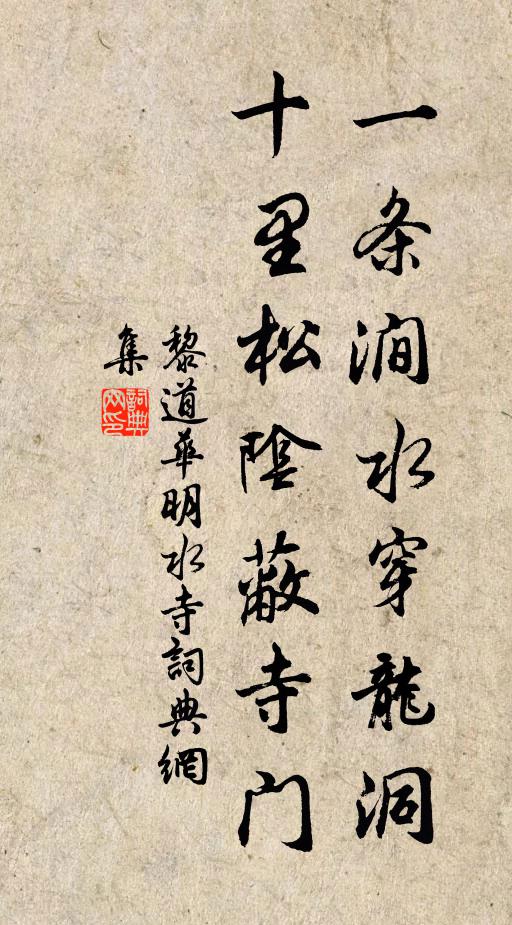 一条澗水穿龍洞
十里松陰蔽寺門
黎道華明水寺詞典網
集
詞典網印